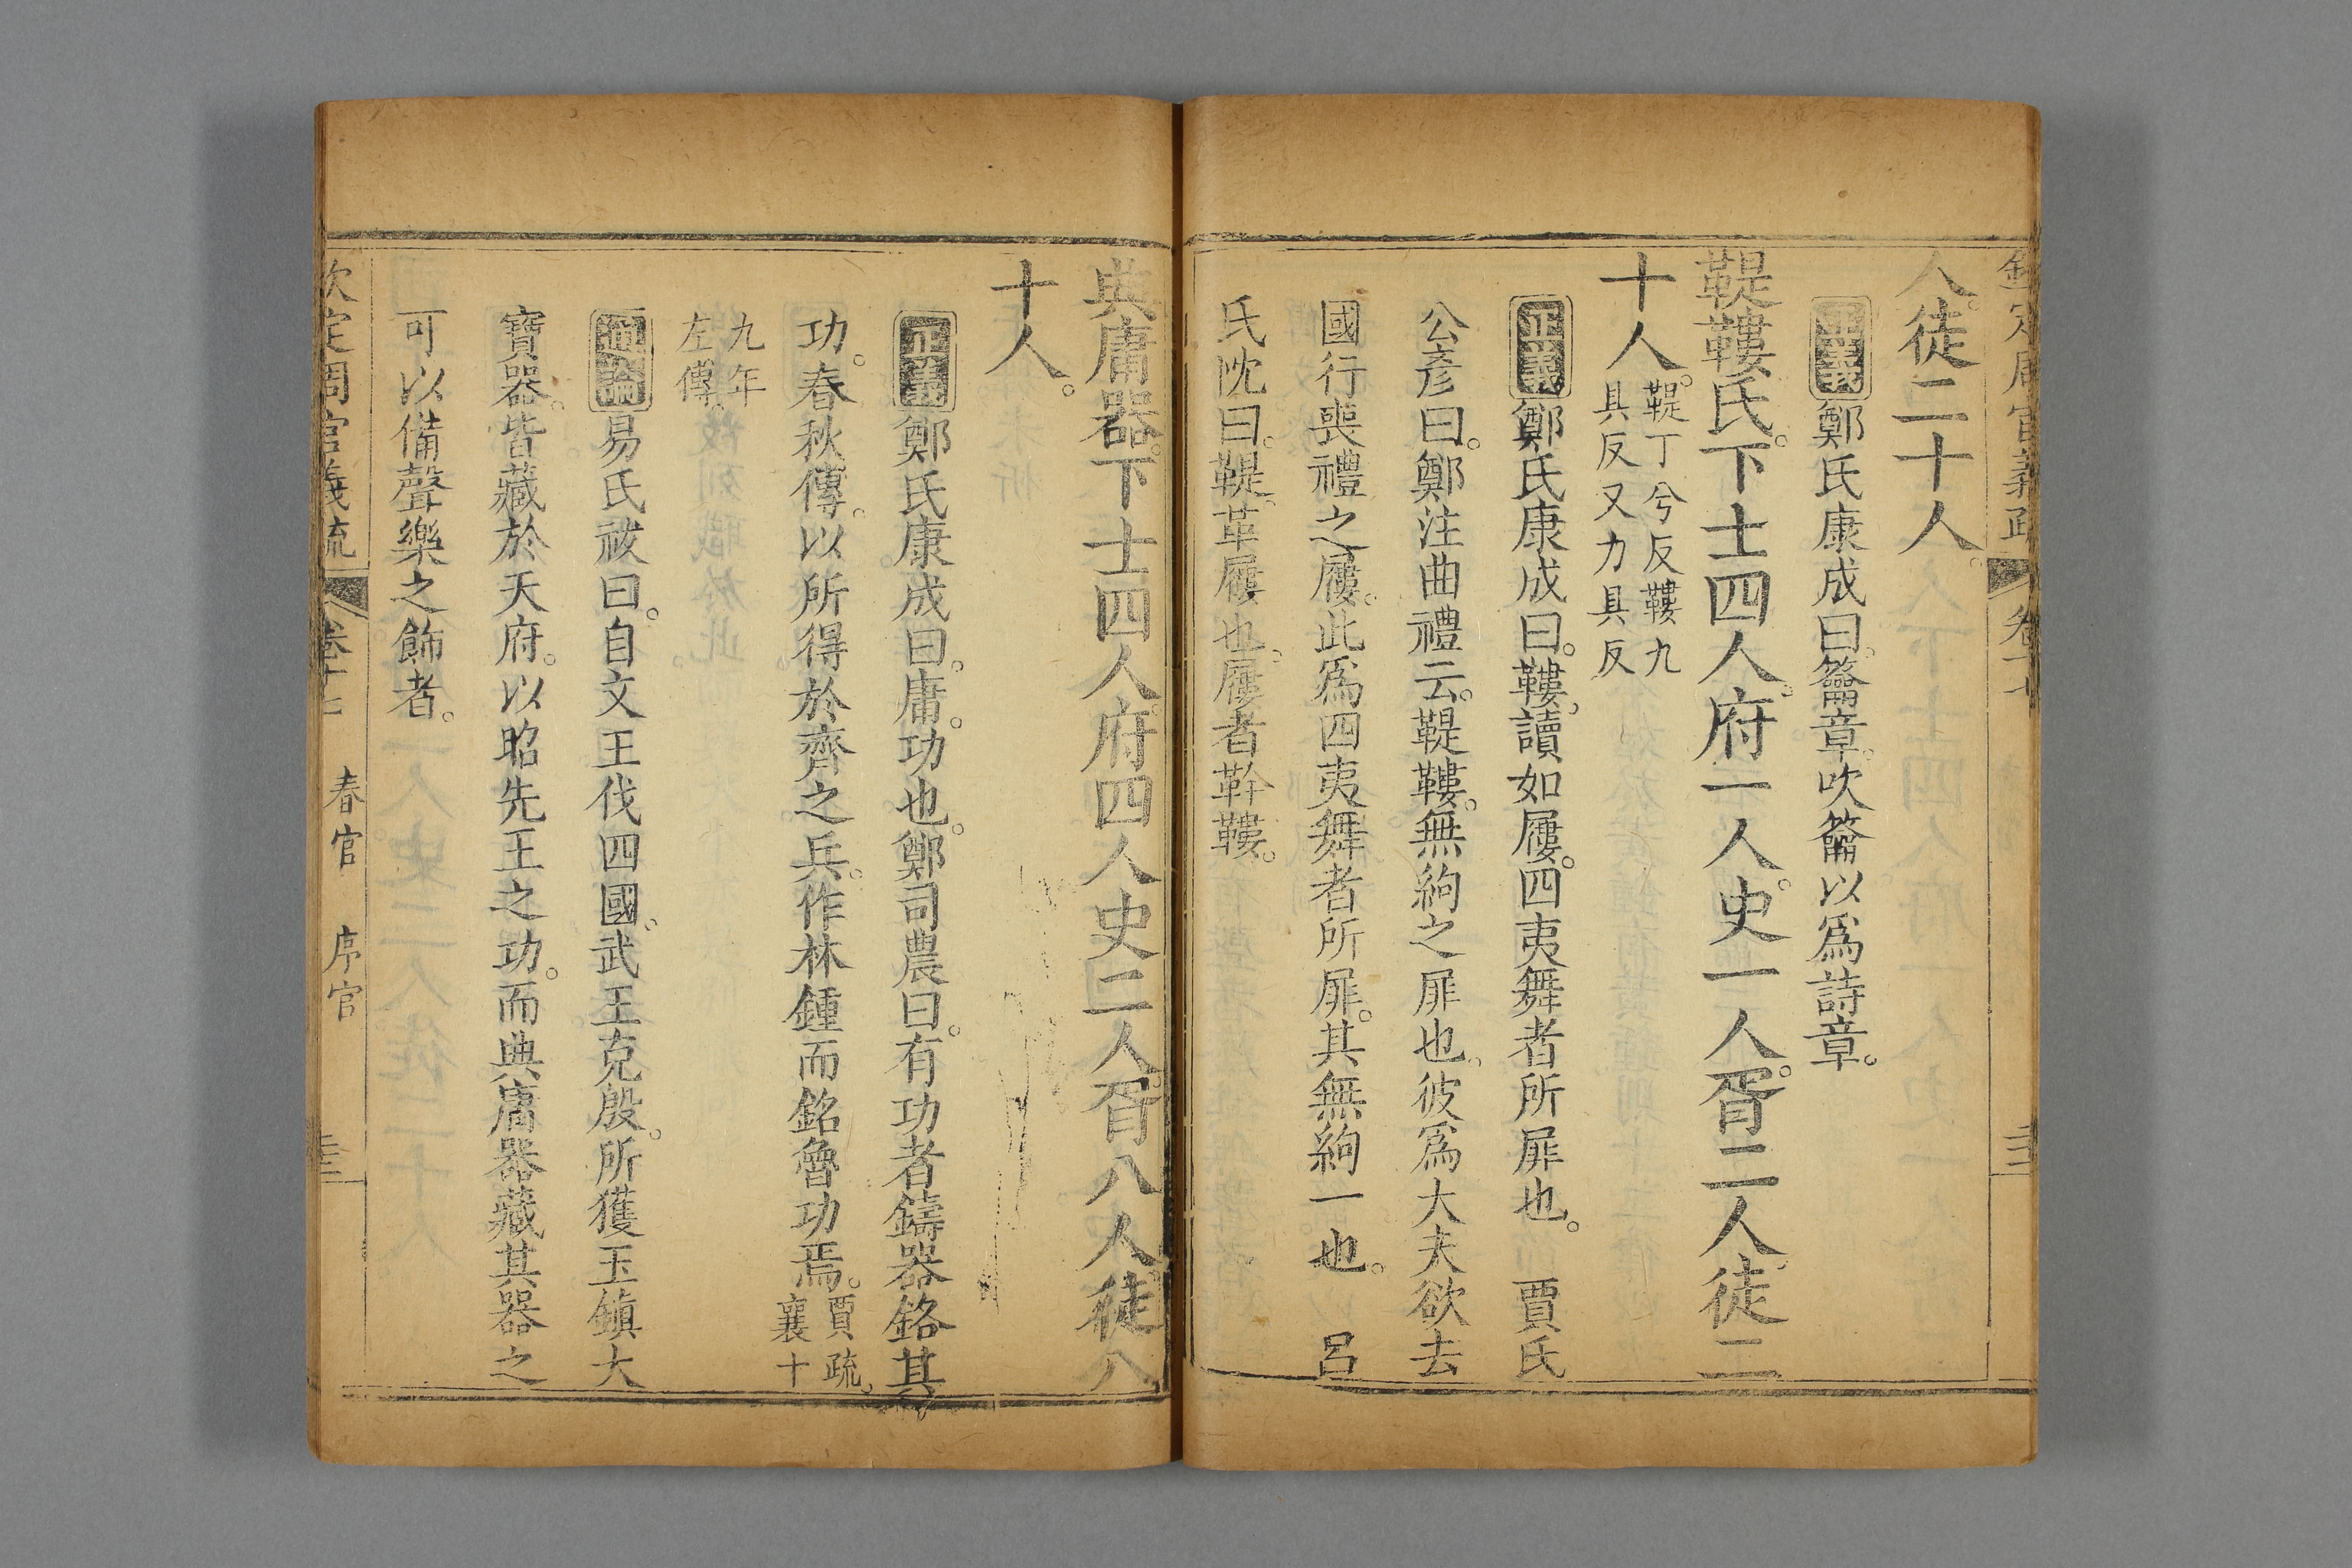 人徒二十人。
正義鄭氏康成曰。籥章。吹籥以爲詩章。
鞮鞻氏。下士四人。府一人。史一人。胥二人。徒二
十人。鞮丁兮反鞻九
具反又力具反
正義鄭氏康成曰。鞻。讀如屨。四夷舞者所屝也。 賈氏
公彥曰。鄭注曲禮云。鞮鞻。無絇之屝也。彼爲大夫欲去
國行喪禮之屨。此爲四夷舞者所屝。其無絇一也。 呂
氏沈曰。鞮。革屨也。屨者鞮鞻。
典庸器。下士四人。府四人。史二人。胥八人。徒八
十人。
正義鄭氏康成曰。庸。功也。鄭司農曰。有功者鑄器銘其
功。春秋傳。以所得於齊之兵。作林鍾而銘魯功焉。賈疏。
襄十
九年
左傳。
通論易氏祓曰。自文王伐四國。武王克殷。所獲玉鎮大
寶器。皆藏於天府。以昭先王之功。而典庸器藏其器之
可以備聲樂之飾者。
欽定周官義疏 卷十七 春官 序官